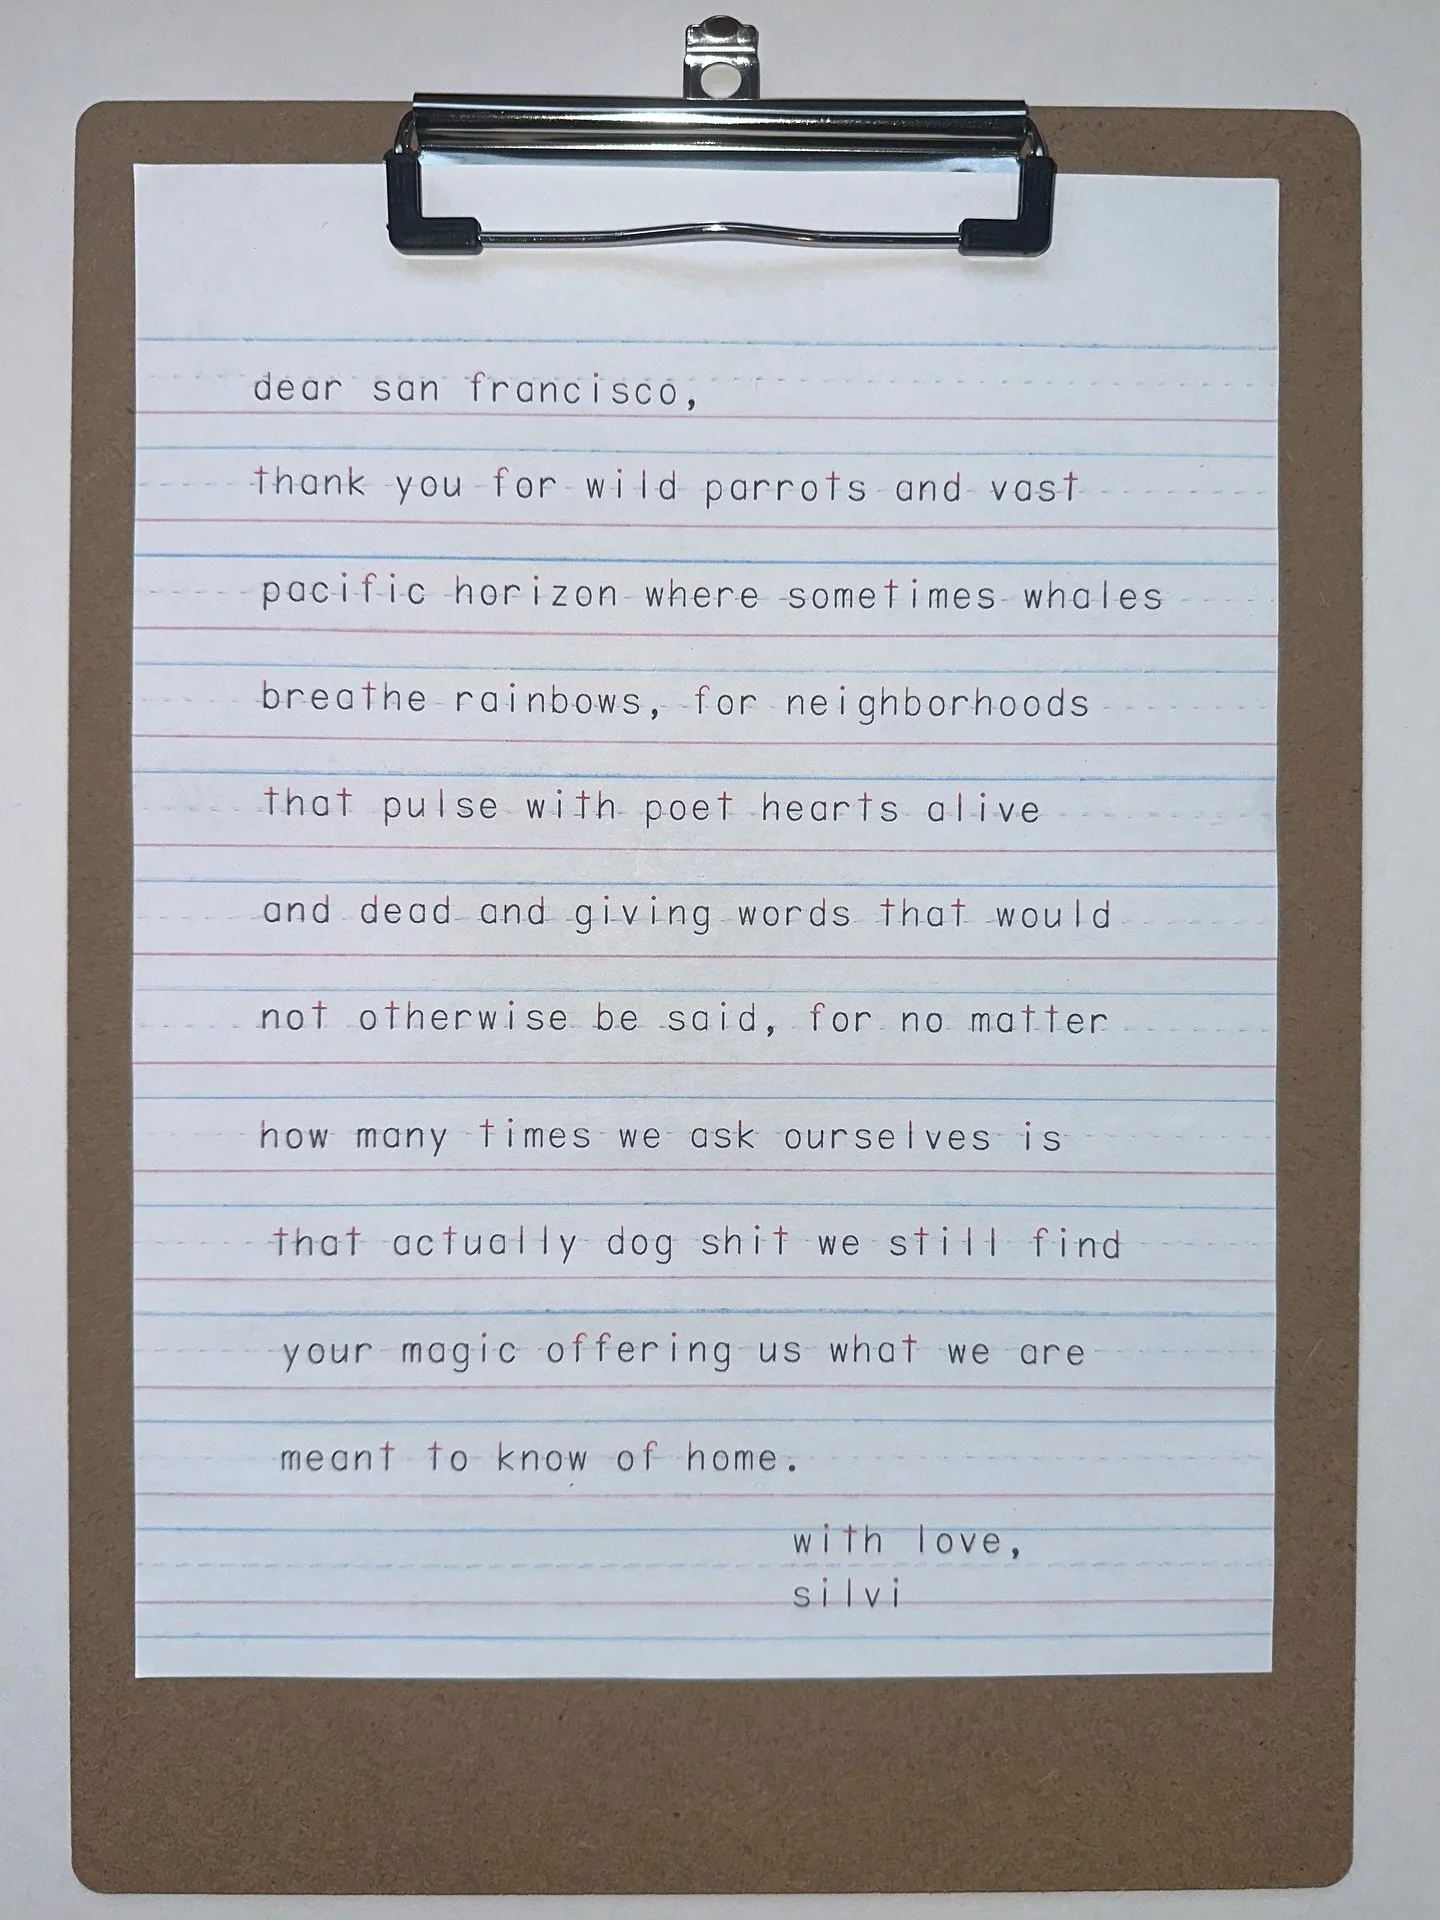 dear san francisco,
thank you for wild parrots and vast
pacific horizon where sometimes whales
breathe rainbows, for neighborhoods
that pulse with poet hearts alive
and dead and giving words that would
not otherwise be said, for no matter
how many times we ask ourselves is
that actually dog shit we still find
your magic offering us what we are
meant to know of home.
with love,
silvi